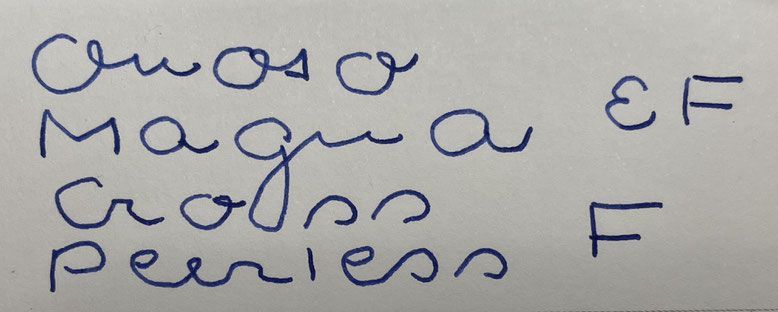 Onoto
Magna EF
Cross
Peerless F